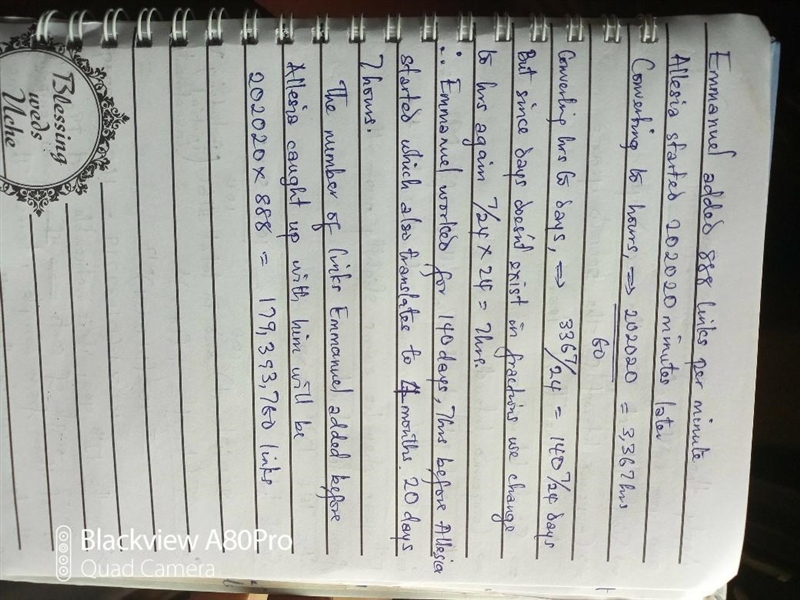 Emmanuel added 888 links per minute
Allesia started 202020 minutes later
Converting to hours, => 202020 = 3,367hrs
60
Converting hrs to days, => 3367/24 = 140 7/24 days
But since days doesn't exist in fractions we change
to hrs again 7/24 x 24 = 7hrs.
∴ Emmanuel worked for 140 days, 7hrs before Allesia
started which also translates to 4 months. 20 days
7hours.
The number of links Emmanuel added before
Allesia caught up with him will be
202020 x 888 = 179,393,760 links.
Blessing
weds
Uche
Blackview A80Pro
Quad Camera